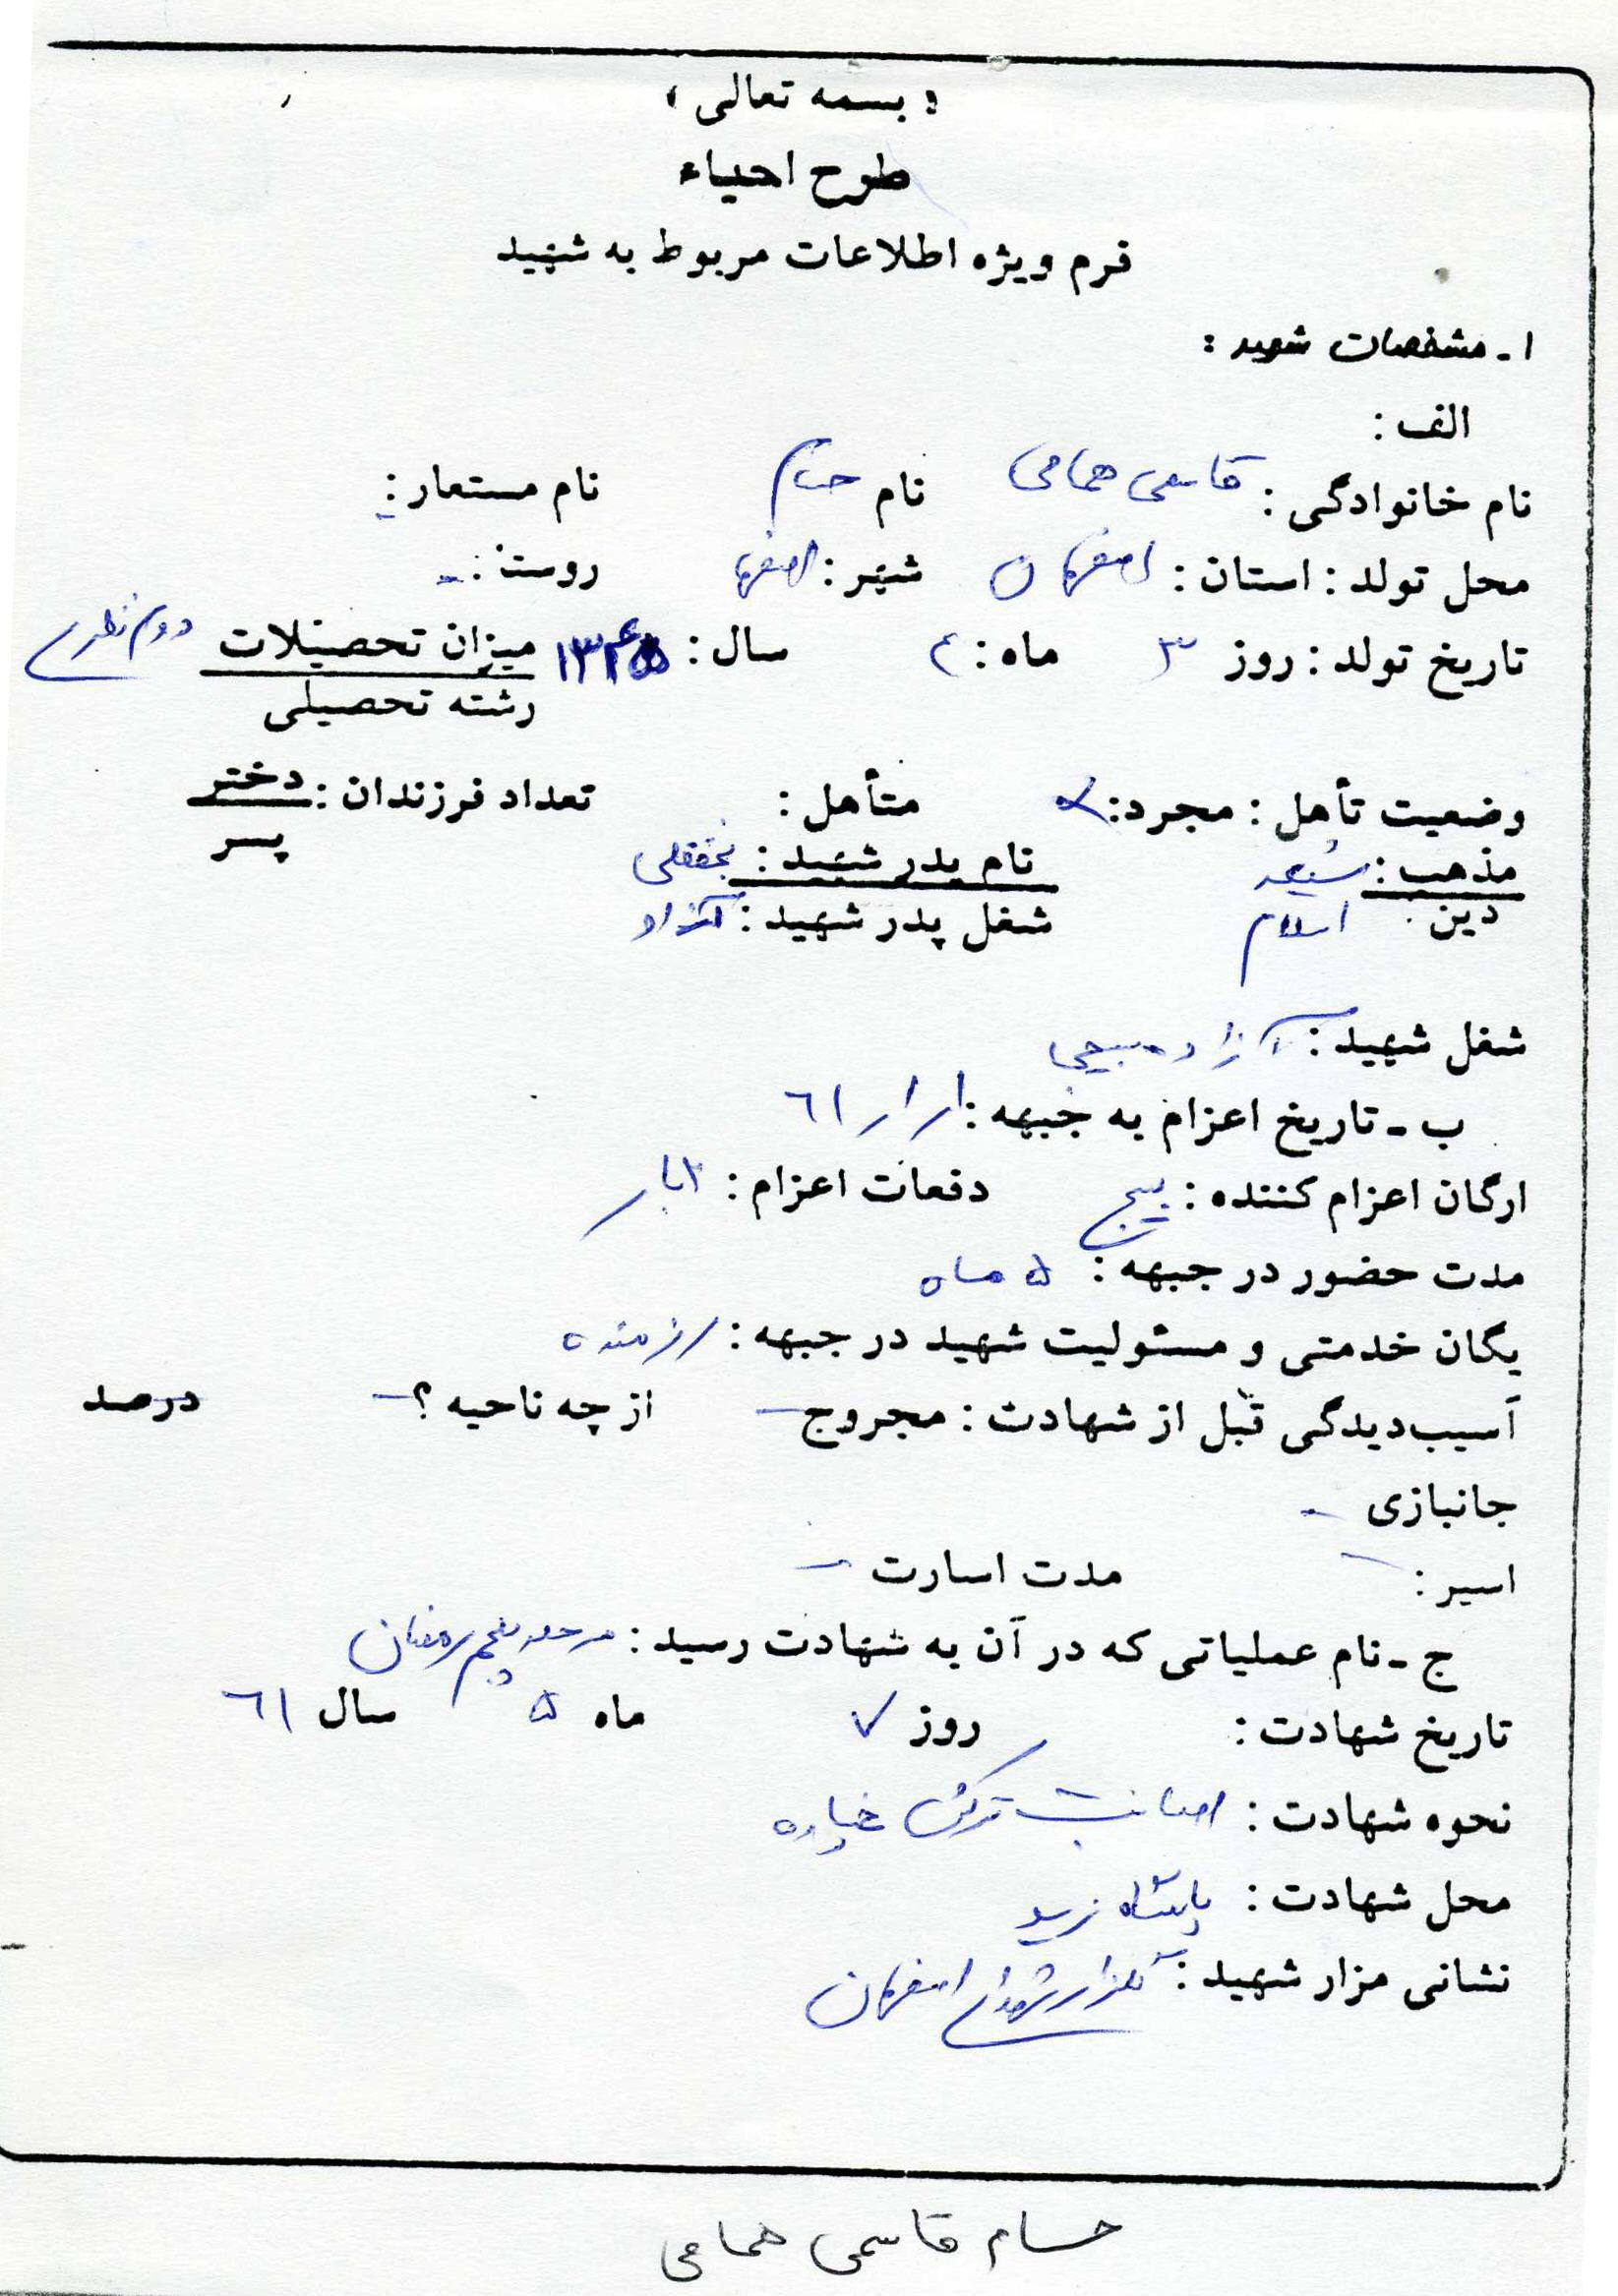 « بسمه تعالی »
طرح احیاء
فرم ویژه اطلاعات مربوط به شهید
۱ـ مشخصات شهید :
الف :
نام خانوادگی : قاسمی همامی نام حسام نام مستعار : -
محل تولد : استان : اصفهان شهر : اصفهان روستا : -
تاریخ تولد : روز ۳ ماه : ۴ سال : میزان تحصیلات دوم نظری
رشته تحصیلی
وضعیت تأهل : مجرد : متأهل : تعداد فرزندان : دختر
پسر
مذهب : شیعه نام پدر شهید : نجفقلی
دین : اسلام شغل پدر شهید : آزاد
شغل شهید : آزاد بسیجی
ب ـ تاریخ اعزام به جبهه : ۶۱/۱/۱
ارگان اعزام کننده : بسیج دفعات اعزام :
مدت حضور در جبهه : ۵ ماه
یگان خدمتی و مسئولیت شهید در جبهه : رزمنده
آسیب‌دیدگی قبل از شهادت : مجروح - از چه ناحیه ؟ - درصد
جانبازی -
اسیر : - مدت اسارت -
ج ـ نام عملیاتی که در آن به شهادت رسید : مرحله پنجم رمضان
تاریخ شهادت : روز ۷ ماه ۵ سال ۶۱
نحوه شهادت : اصابت ترکش خمپاره
محل شهادت : پاسگاه زید
نشانی مزار شهید : گلزار شهدای اصفهان
حسام قاسمی همامی